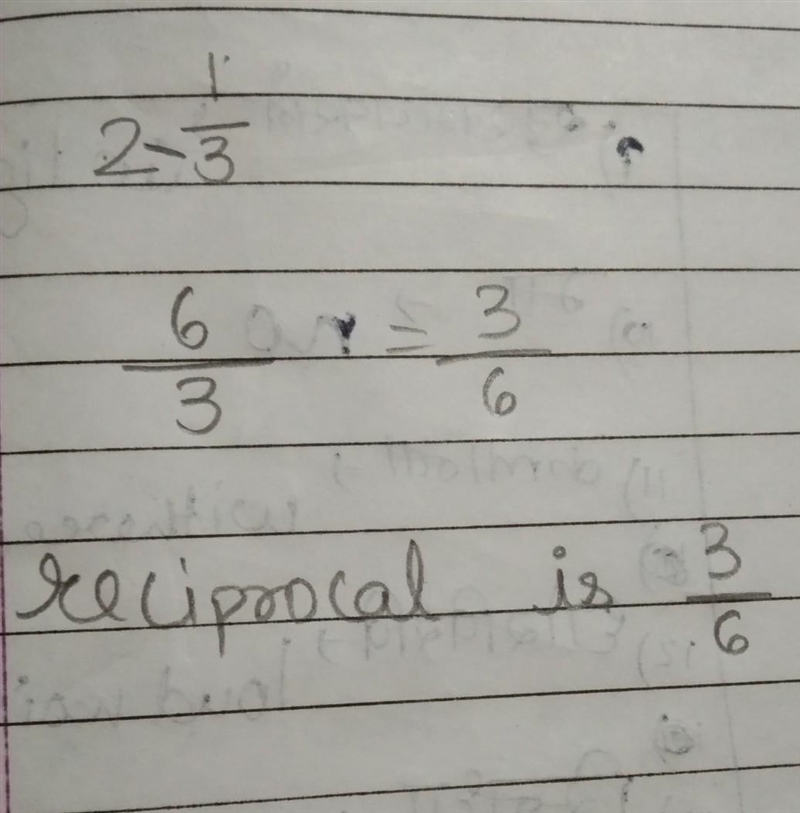 2-1/3
6/3 = 3/6
reciprocal is 3/6